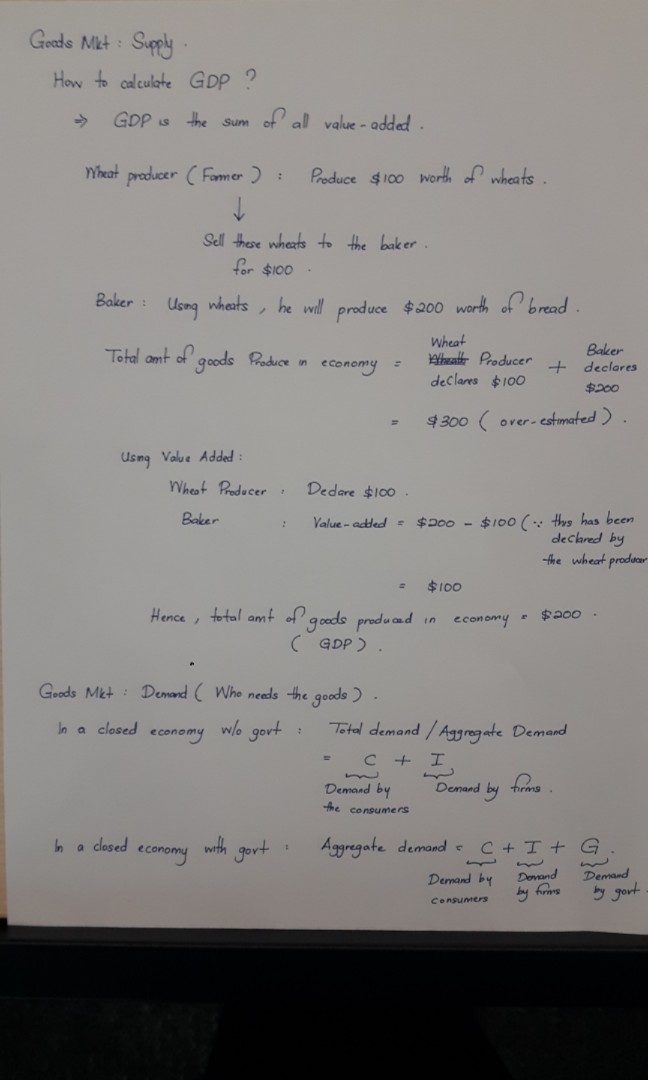 Goods Mkt : Supply.
How to calculate GDP ?
⇒ GDP is the sum of all value-added.
Wheat producer ( Farmer ) : Produce $100 worth of wheats.
↓
Sell these wheats to the baker.
for $100.
Baker : Using wheats, he will produce $200 worth of bread.
Total amt of goods Produce in economy = Wheat Producer declares $100 + Baker declares $200
= $300 ( over-estimated ).
Using Value Added :
Wheat Producer : Declare $100.
Baker : Value-added = $200 - $100 ( ∵ this has been
declared by
the wheat producer
= $100
Hence, total amt of goods produced in economy = $200.
( GDP ).
Goods Mkt : Demand ( Who needs the goods ).
In a closed economy w/o govt : Total demand / Aggregate Demand
= C + I
Demand by the consumers Demand by firms.
In a closed economy with govt : Aggregate demand = C + I + G.
Demand by consumers Demand by firms Demand by govt.